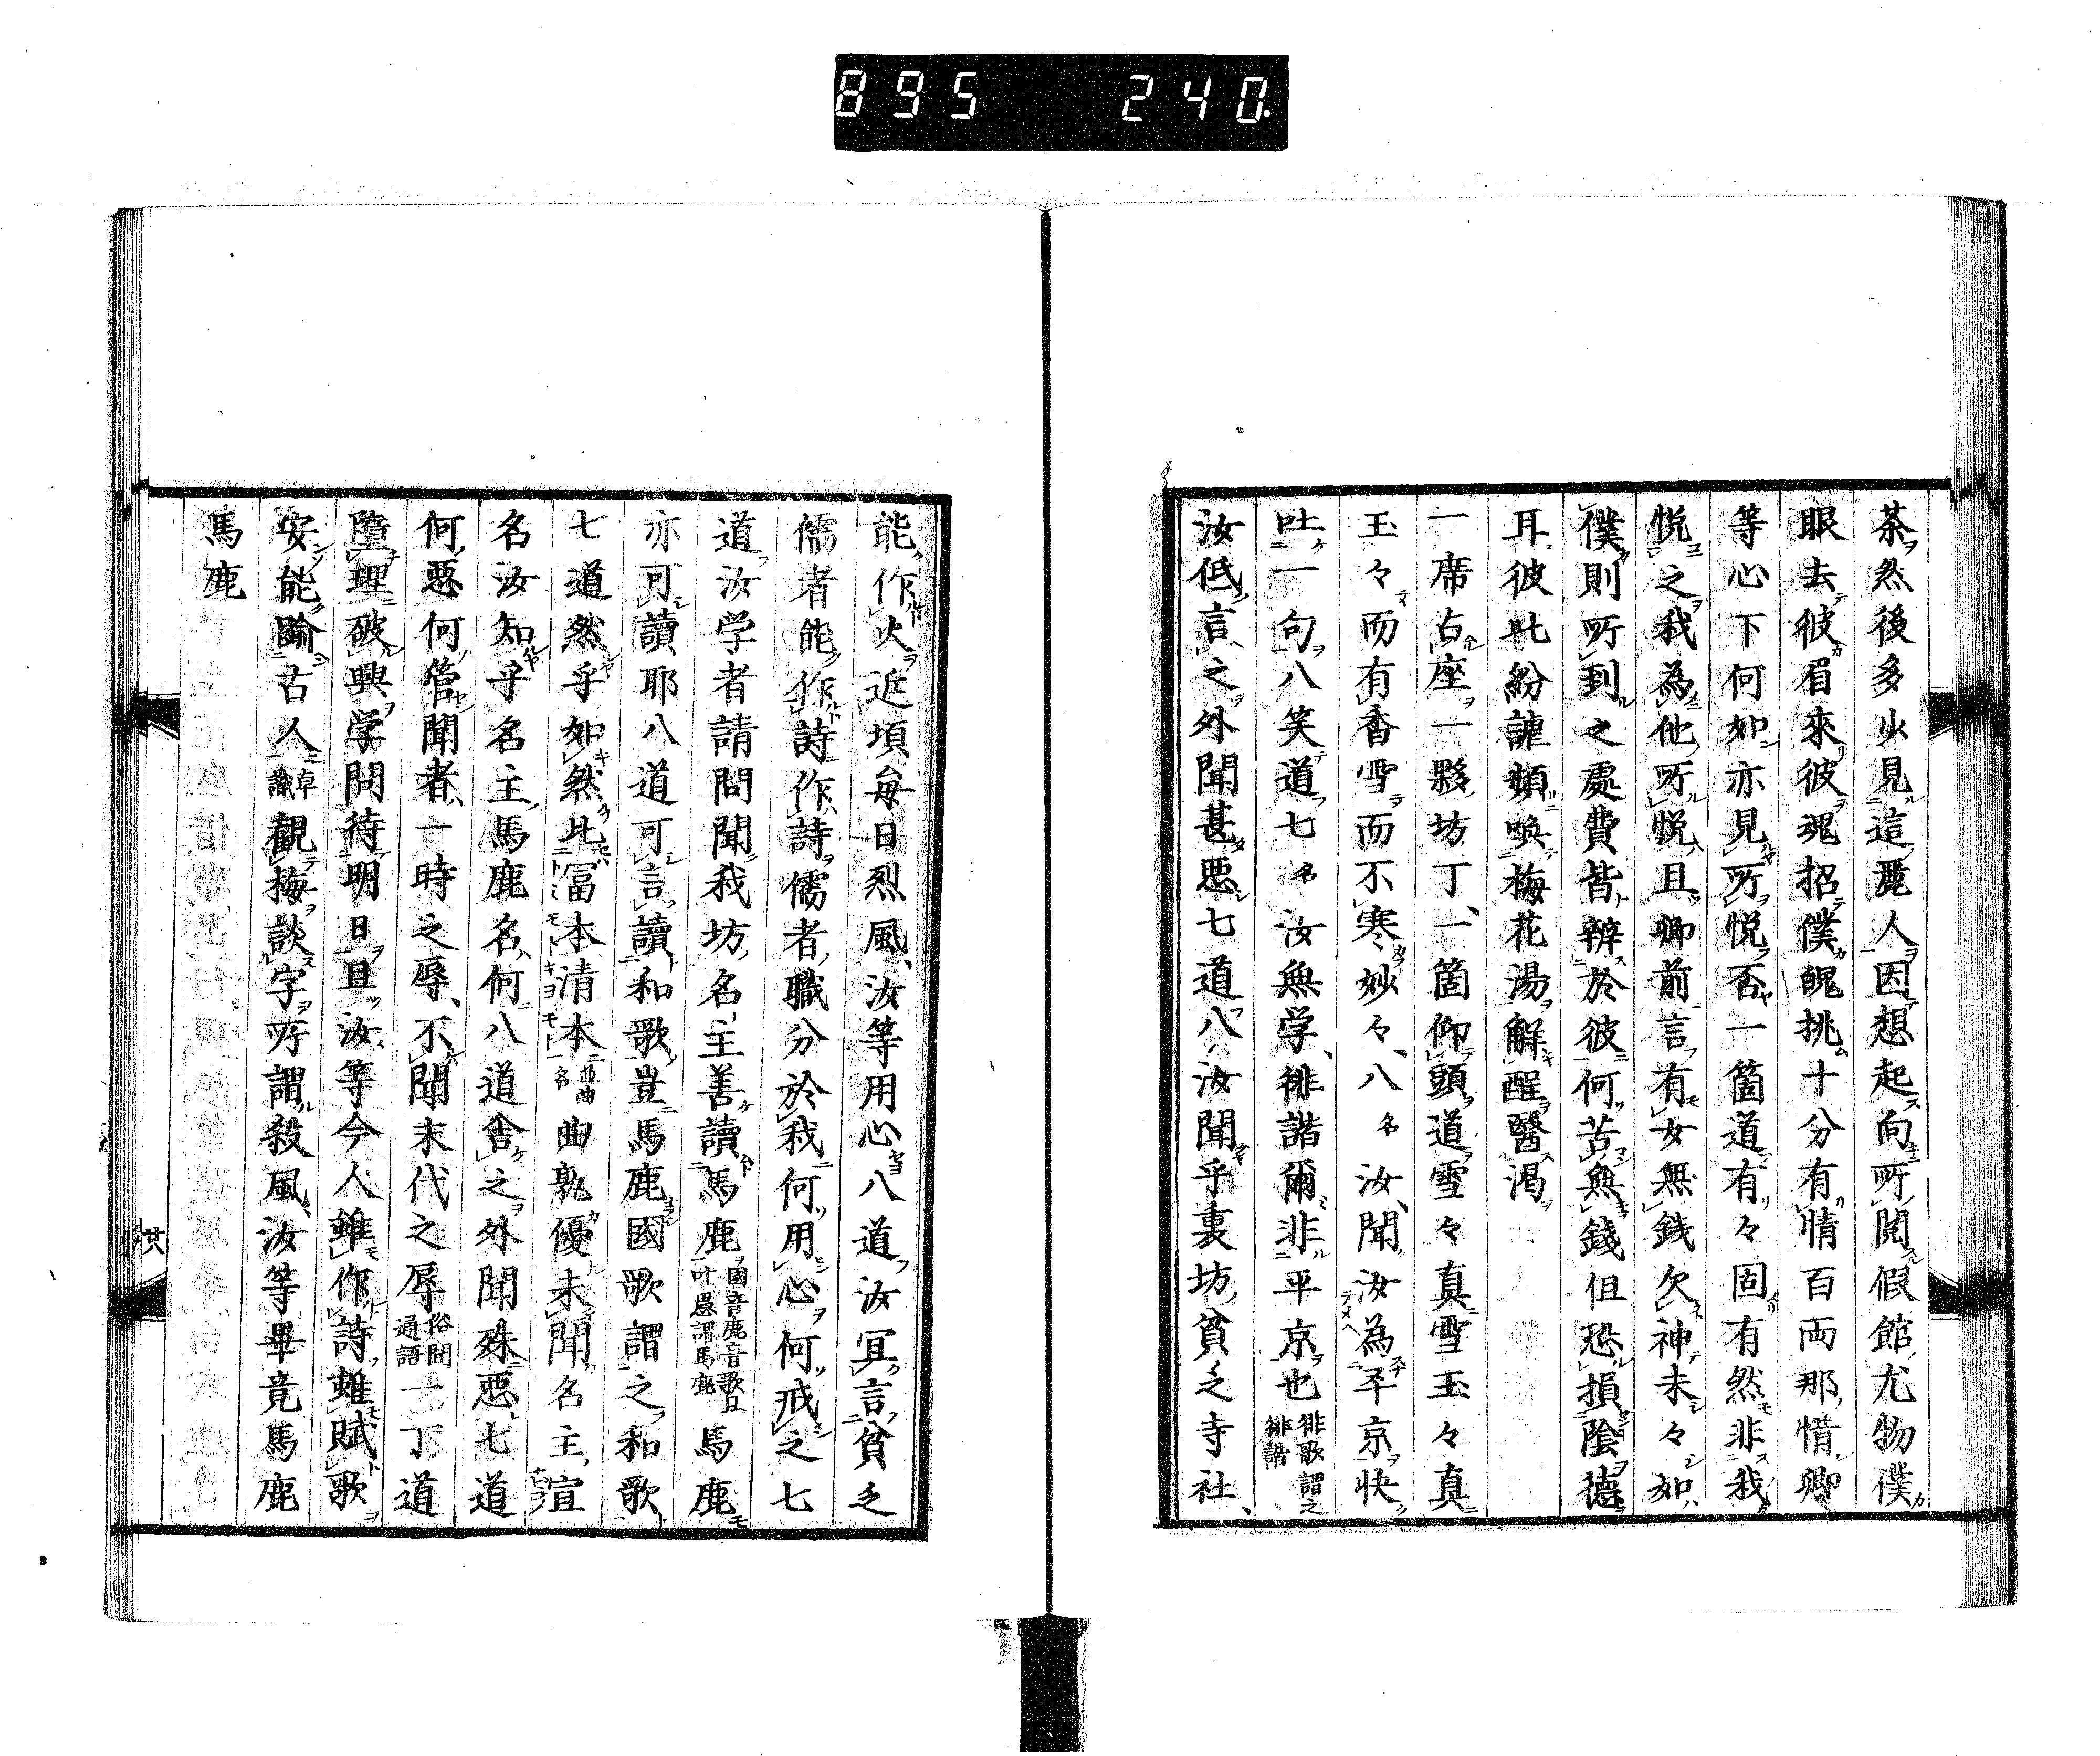 895 240.
茶然後多少見這麗人因想起向所閲假館尤物僕
眼去彼眉來彼魂招僕魄挑十分有情百両那惜卿
等心下何如亦見所悦否一箇道有々固有然非我
悦之我為他所悦且卿前言有女無錢欠神未々如
僕則所到之處費皆辨於彼何苦無錢但恐損陰德
耳彼此紛謔頻喚梅花湯解酲醫渴
一席占座一夥坊丁一箇仰頭道雪々真雪玉々真
玉々而有香雪而不寒妙々八名汝聞汝為平京快
吐一句八笑道七名汝無学徘諧爾非平京也徘歌謂之徘諧
汝低言之外聞甚悪七道八汝聞乎裏坊貧乏寺社
能作火近頃毎日烈風汝等用心八道汝冝言貧乏
儒者能作詩作詩儒者職分於我何用心何戒之七
道汝学者請問聞我坊名主善讀馬鹿國音鹿音歌且叶愚謂馬鹿馬鹿
亦可讀耶八道可言讀和歌豈馬鹿國歌謂之和歌
七道然乎如然此冨本清本並曲名曲孰優未聞名主宣
名汝知乎名主馬鹿名何八道舎之外聞殊悪七道
何悪何管聞者一時之辱不聞末代之辱俗間通語一丁道
墮理破興学問待明日且汝等今人雖作詩雖賦歌
安能踰古人卓識觀梅談字所謂殺風汝等畢竟馬鹿
馬鹿
廿六